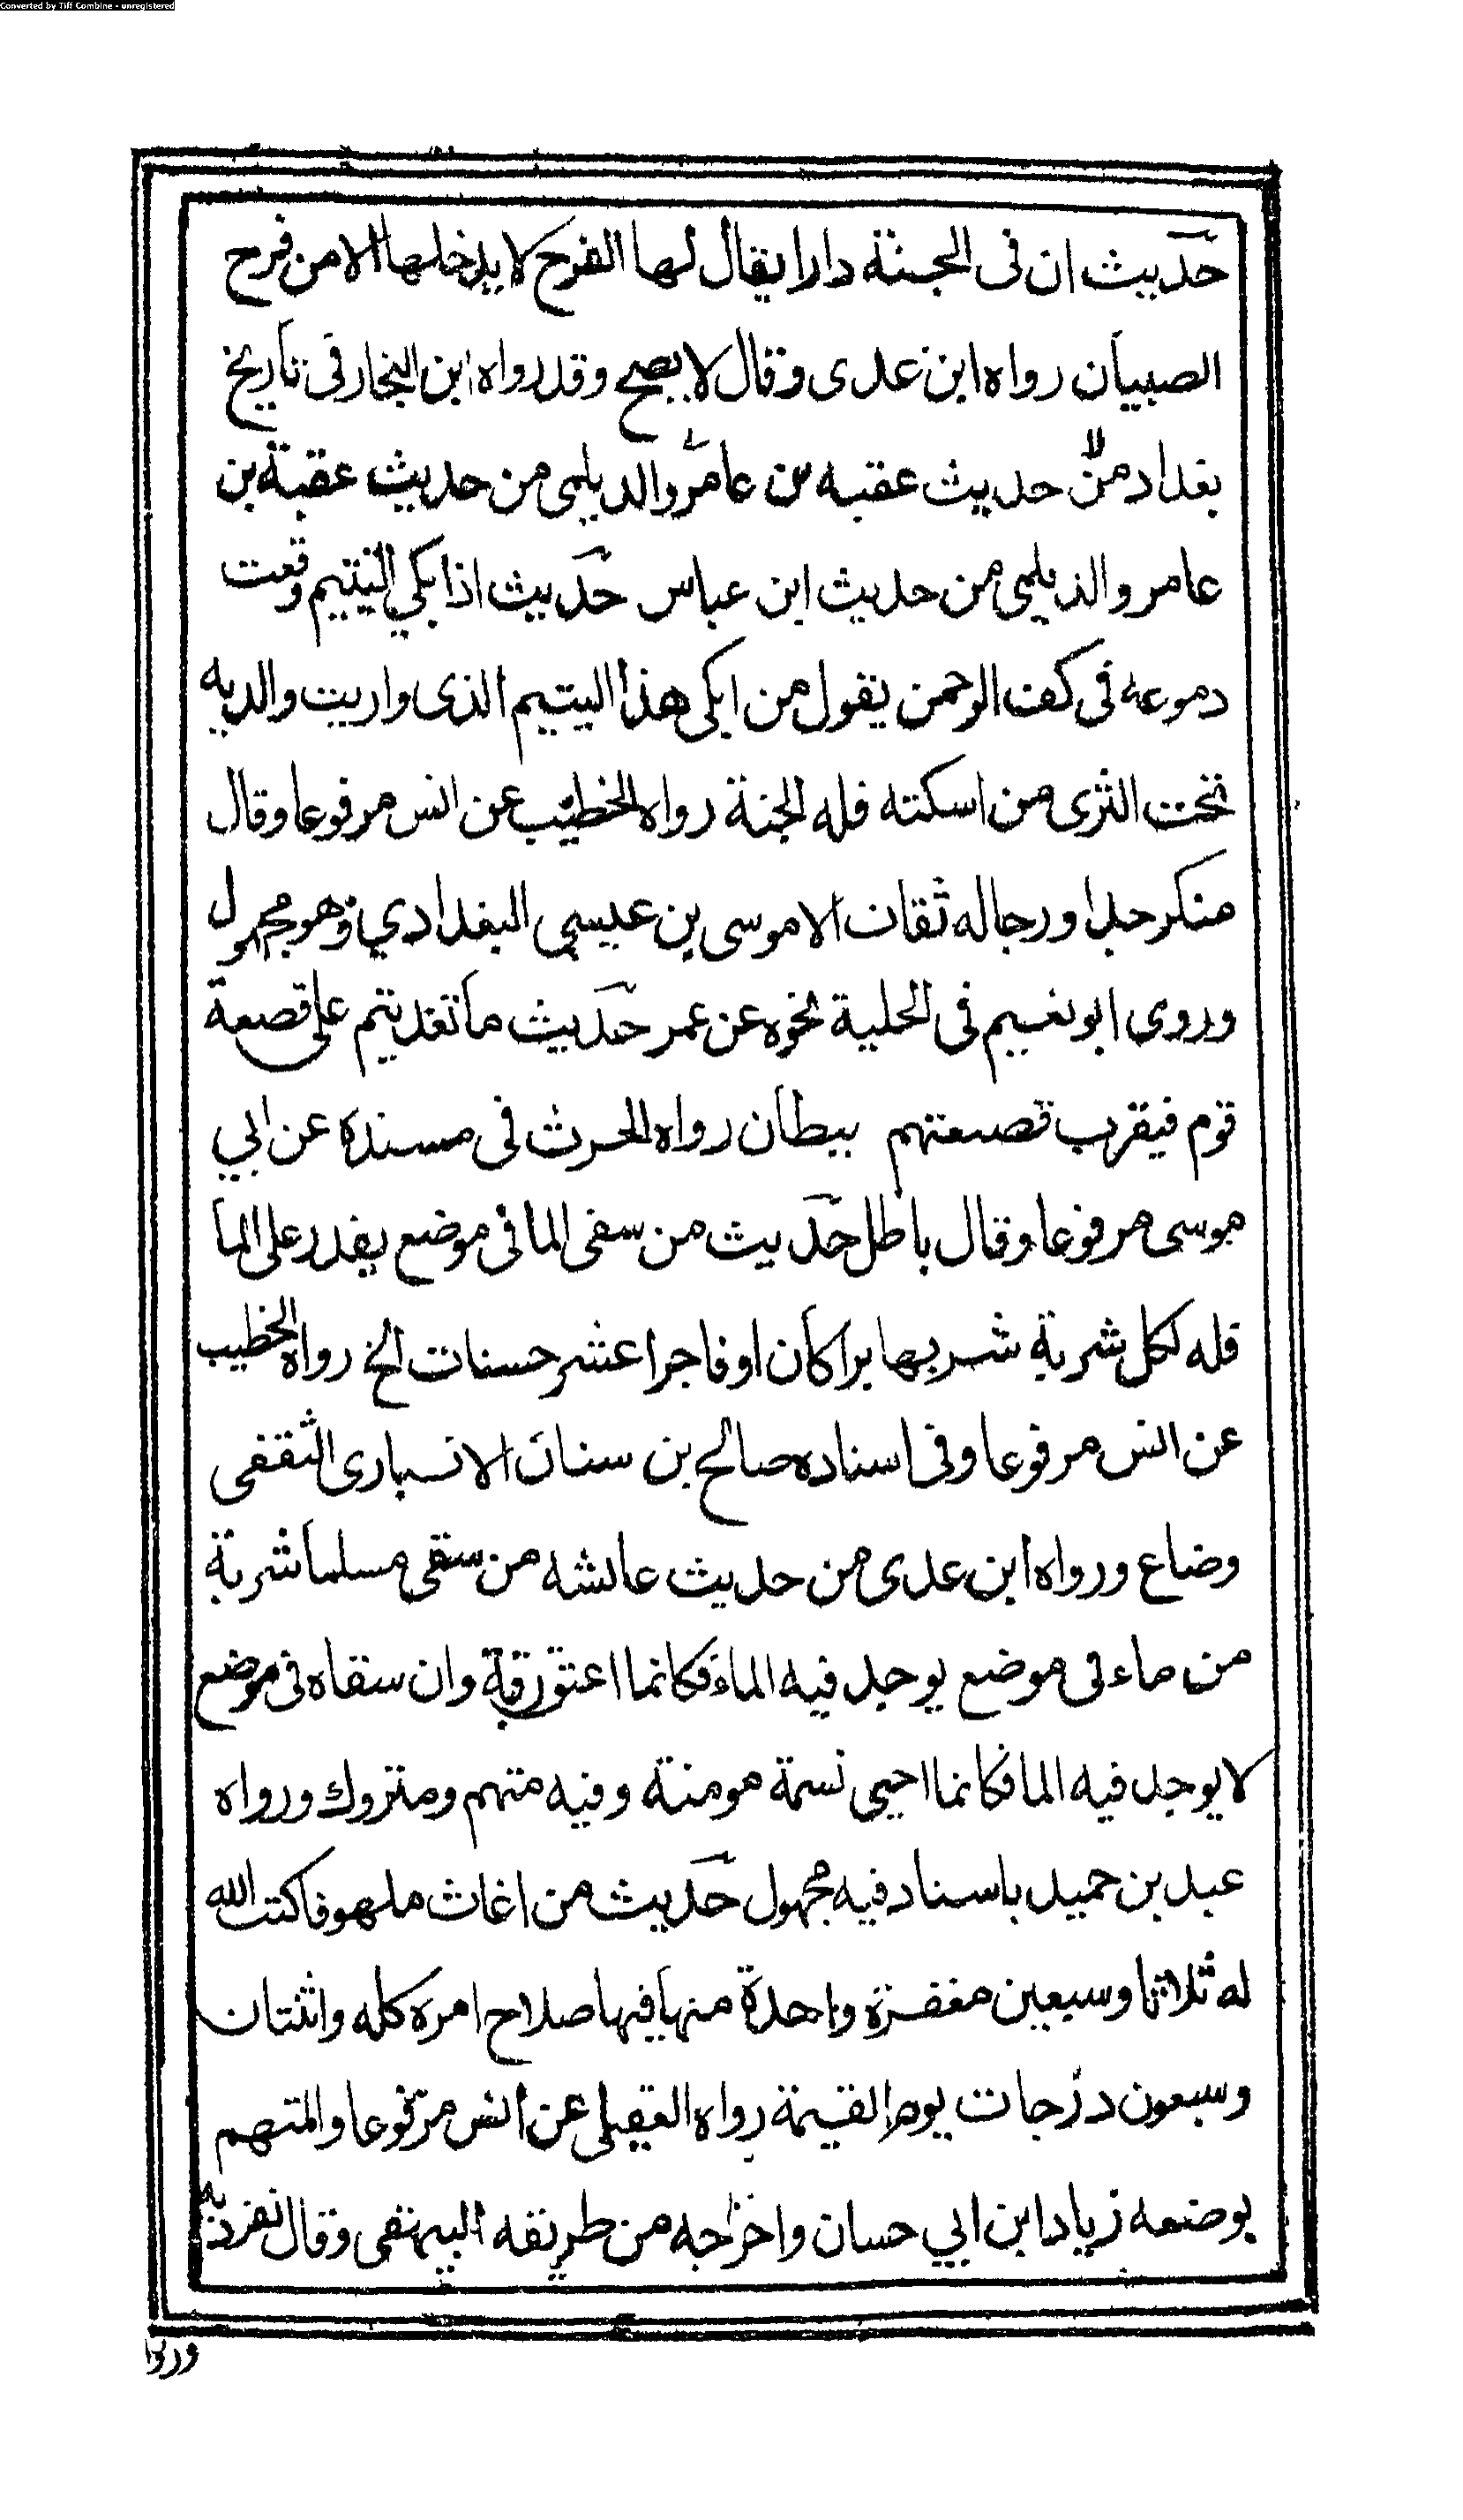 Converted by Tiff Combine - unregistered
حديث ان فى الجنة دارا يقال لها الفرح لا يدخلها الا من فرح
الصبيان رواه ابن عدى وقال لا يصح وقد رواه ابن النجار فى تاريخ
بغداد من حديث عقبه بن عامر والديلمى من حديث عقبة بن
عامر والديلمى من حديث ابن عباس حديث اذا بكي اليتيم وقعت
دموعه فى كف الرحمن يقول من ابكى هذا اليتيم الذى واريت والديه
تحت الثرى من اسكته فله الجنة رواه الخطيب عن انس مرفوعا وقال
منكر جدا ورجاله ثقات الا موسى بن عيسى البغدادي وهو مجهول
وروى ابو نعيم فى الحلية نحوه عن عمر حديث ما تقديتم على قصعة
قوم فيقرب قصعتهم بيطان رواه الحرث فى مسنده عن ابي
موسى مرفوعا وقال باطل حديث من سقى الما فى موضع يقدر على الما
فله لكل شربة شربها برا كان او فاجرا عشر حسنات الخ رواه الخطيب
عن انس مرفوعا وفى اسناده صالح بن سنان الانبارى الثقفى
وضاع ورواه ابن عدى من حديث عائشه من سقى مسلما شربة
من ماء فى موضع يوجد فيه الماء فكانما اعتق رقبة وان سقاه فى موضع
لا يوجد فيه الما فكانما احيى نسمة مومنة وفيه متهم ومتروك ورواه
عبد بن حميد باسناد فيه مجهول حديث من اغاث ملهوفا كتب الله
له ثلاثا وسبعين مغفرة واحدة منها فيها صلاح امره كله واثنتان
وسبعون درجات يوم القيمة رواه العقيلى عن انس مرفوعا والمتهم
بوضعه زياد ابن ابي حسان واخرجه من طريقه البيهقى وقال تفرد به